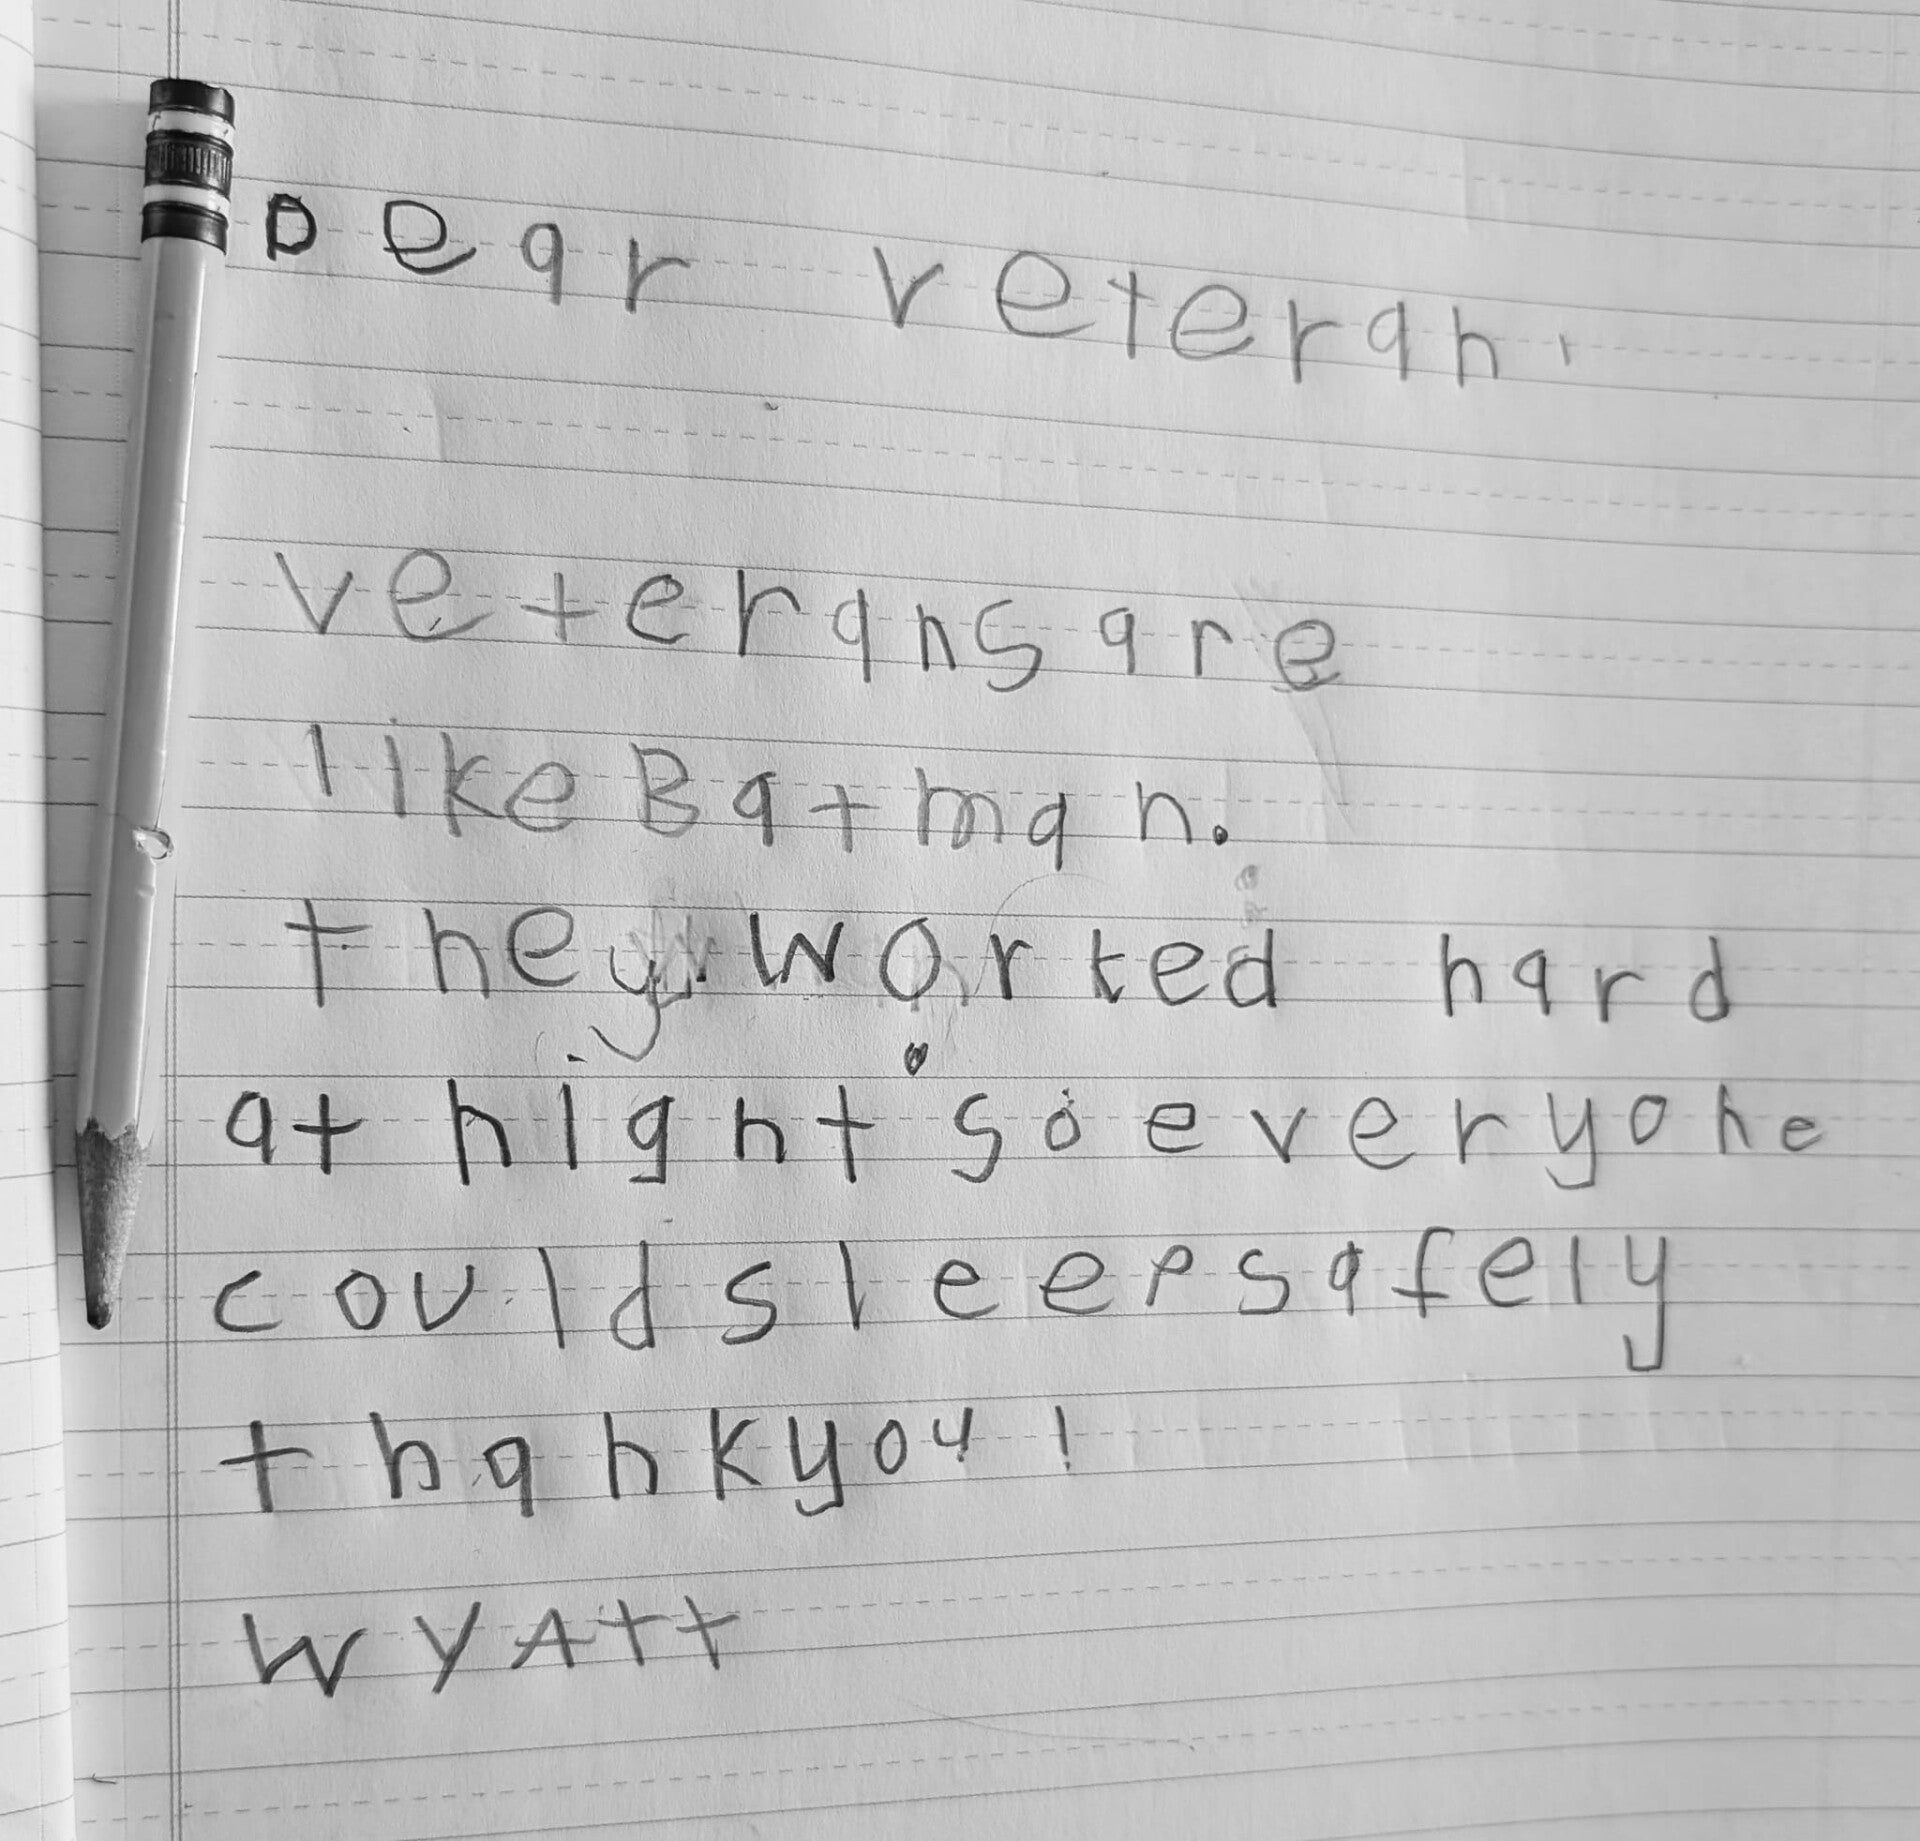 Dear veteran,
veterans are
like Batman.
they worked hard
at night so everyone
could sleep safely
thank you!
WyAtt